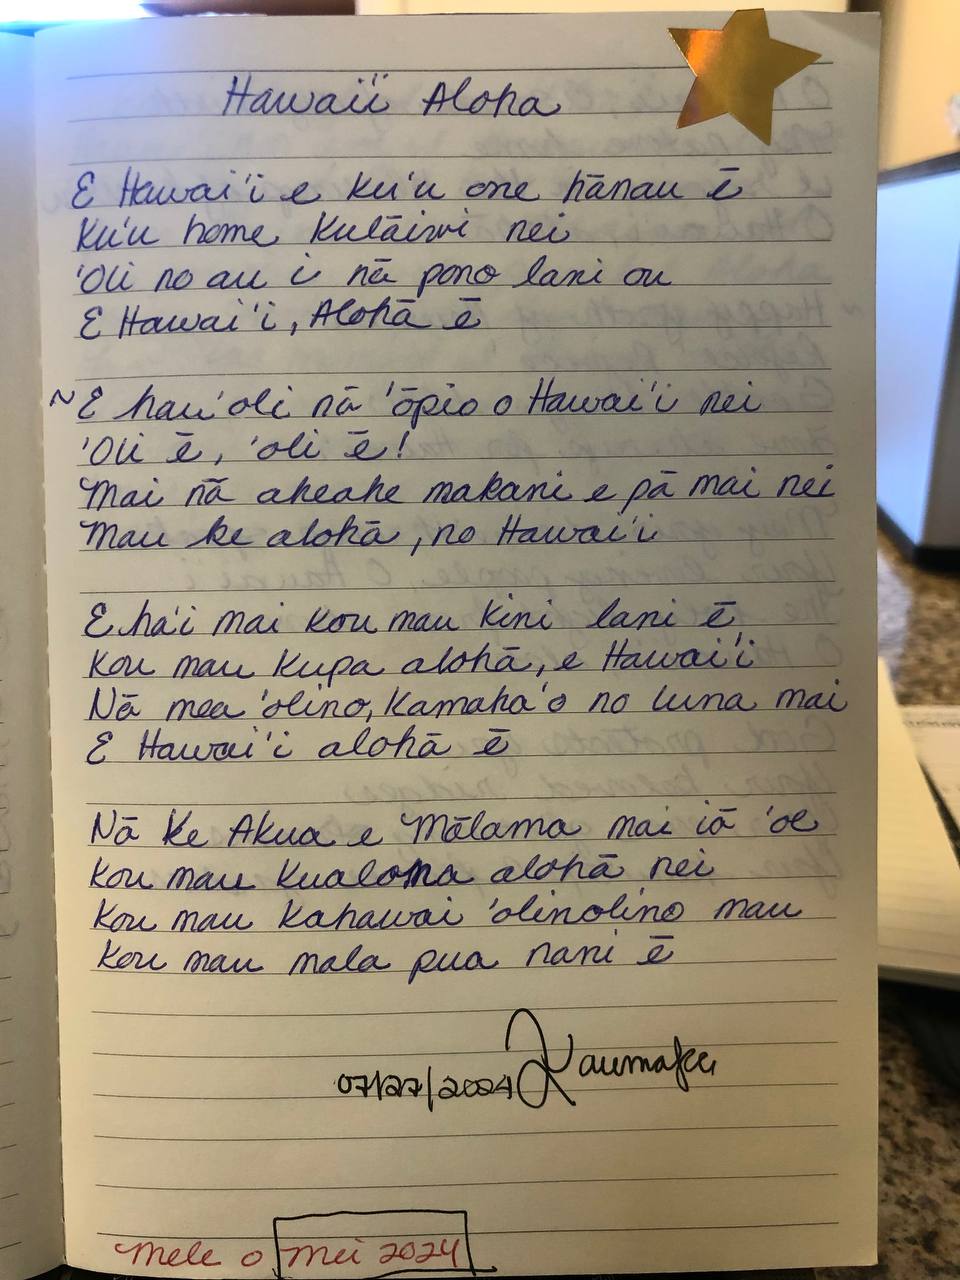 Hawai'i Aloha
E Hawai'i e ku'u one hānau ē
Ku'u home kulāiwi nei
'Oli no au i nā pono lani ou
E Hawai'i, Alohā ē
~E hau'oli nā 'ōpio o Hawai'i nei
'Oli ē, 'oli ē!
Mai nā aheahe makani e pā mai nei
Mau ke alohā, no Hawai'i
E ha'i mai kou mau kini lani ē
Kou mau kupa alohā, e Hawai'i
Nā mea 'olino, kamaha'o no luna mai
E Hawai'i alohā ē
Nā ke Akua e Mālama mai iā 'oe
Kou mau kualona alohā nei
Kou mau kahawai 'olinolino mau
Kou mau mala pua nani ē
07/27/2024 Kaumaka
Mele o Mei 2024